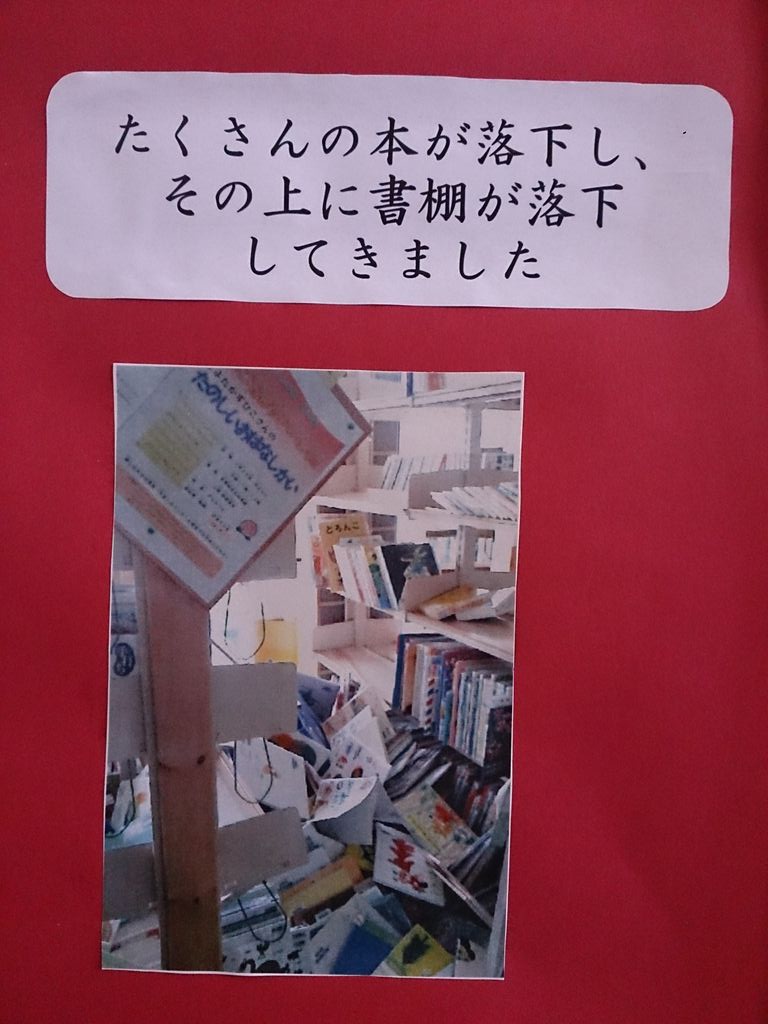 たくさんの本が落下し、
その上に書棚が落下
してきました
たのしいおはなしかい
どろんこ